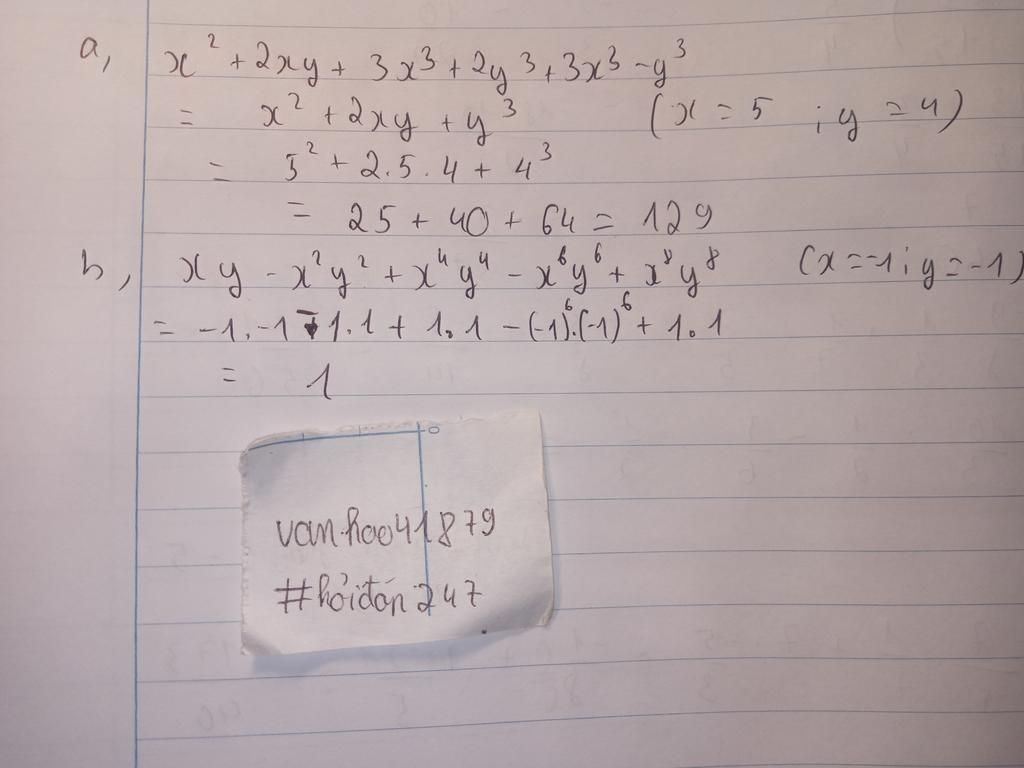 a, x² + 2xy + 3x³ + 2y³ + 3x³ - y³
= x² + 2xy + y³ (x = 5 ; y = 4)
= 5² + 2.5.4 + 4³
= 25 + 40 + 64 = 129
b, xy - x²y² + x⁴y⁴ - x⁶y⁶ + x⁸y⁸ (x = -1 ; y = -1)
= -1. -1 - 1.1 + 1.1 - (-1)⁶.(-1)⁶ + 1.1
= 1
0
van.hoo41879
#hỏiđáp247